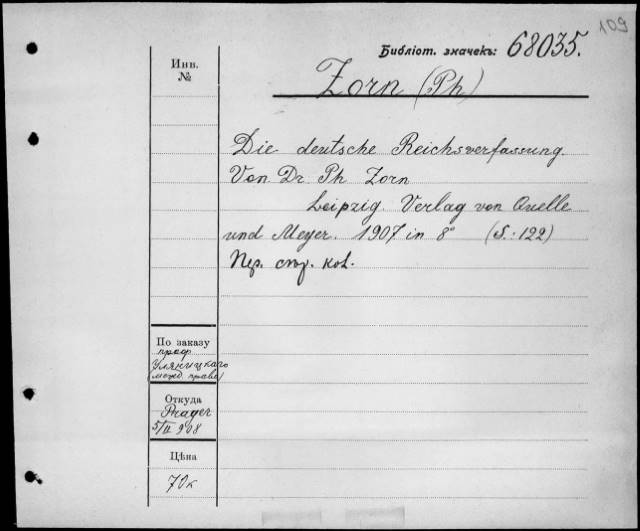 109
Библіот. значекъ: 68035.
Инв.
№
Zorn (Ph)
Die deutsche Reichsverfassung.
Von Dr. Ph Zorn
Leipzig. Verlag von Quelle
und Meyer. 1907 in 8° (S.: 122)
Пер.
По заказу
проф
Уляницкаго
(межд. права)
Откуда
Prager
5/II 908
Цѣна
70к